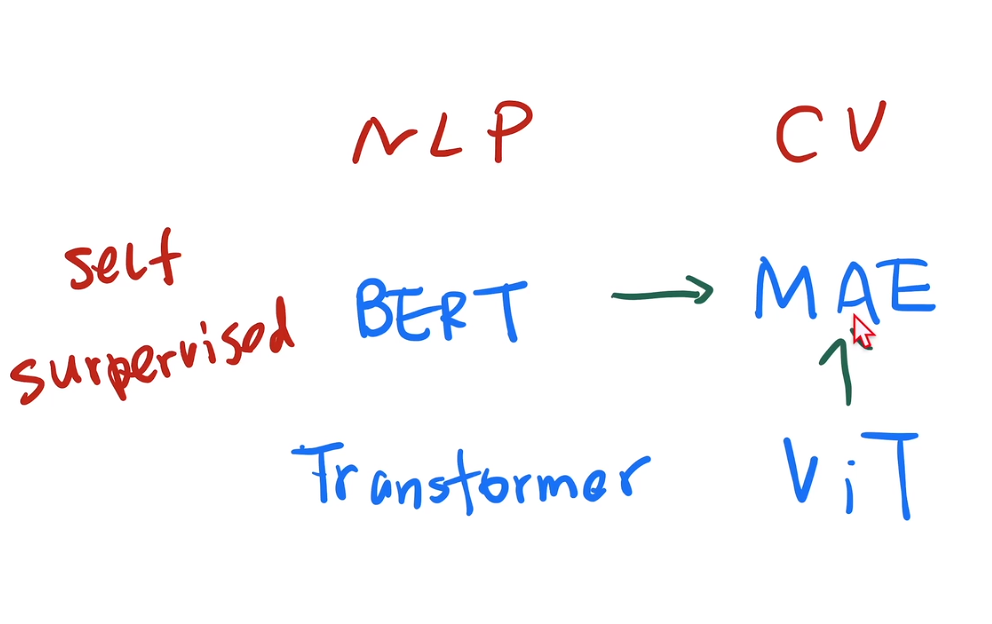 NLP CV
self
surpervised
BERT → MAE
↑
Transformer ViT